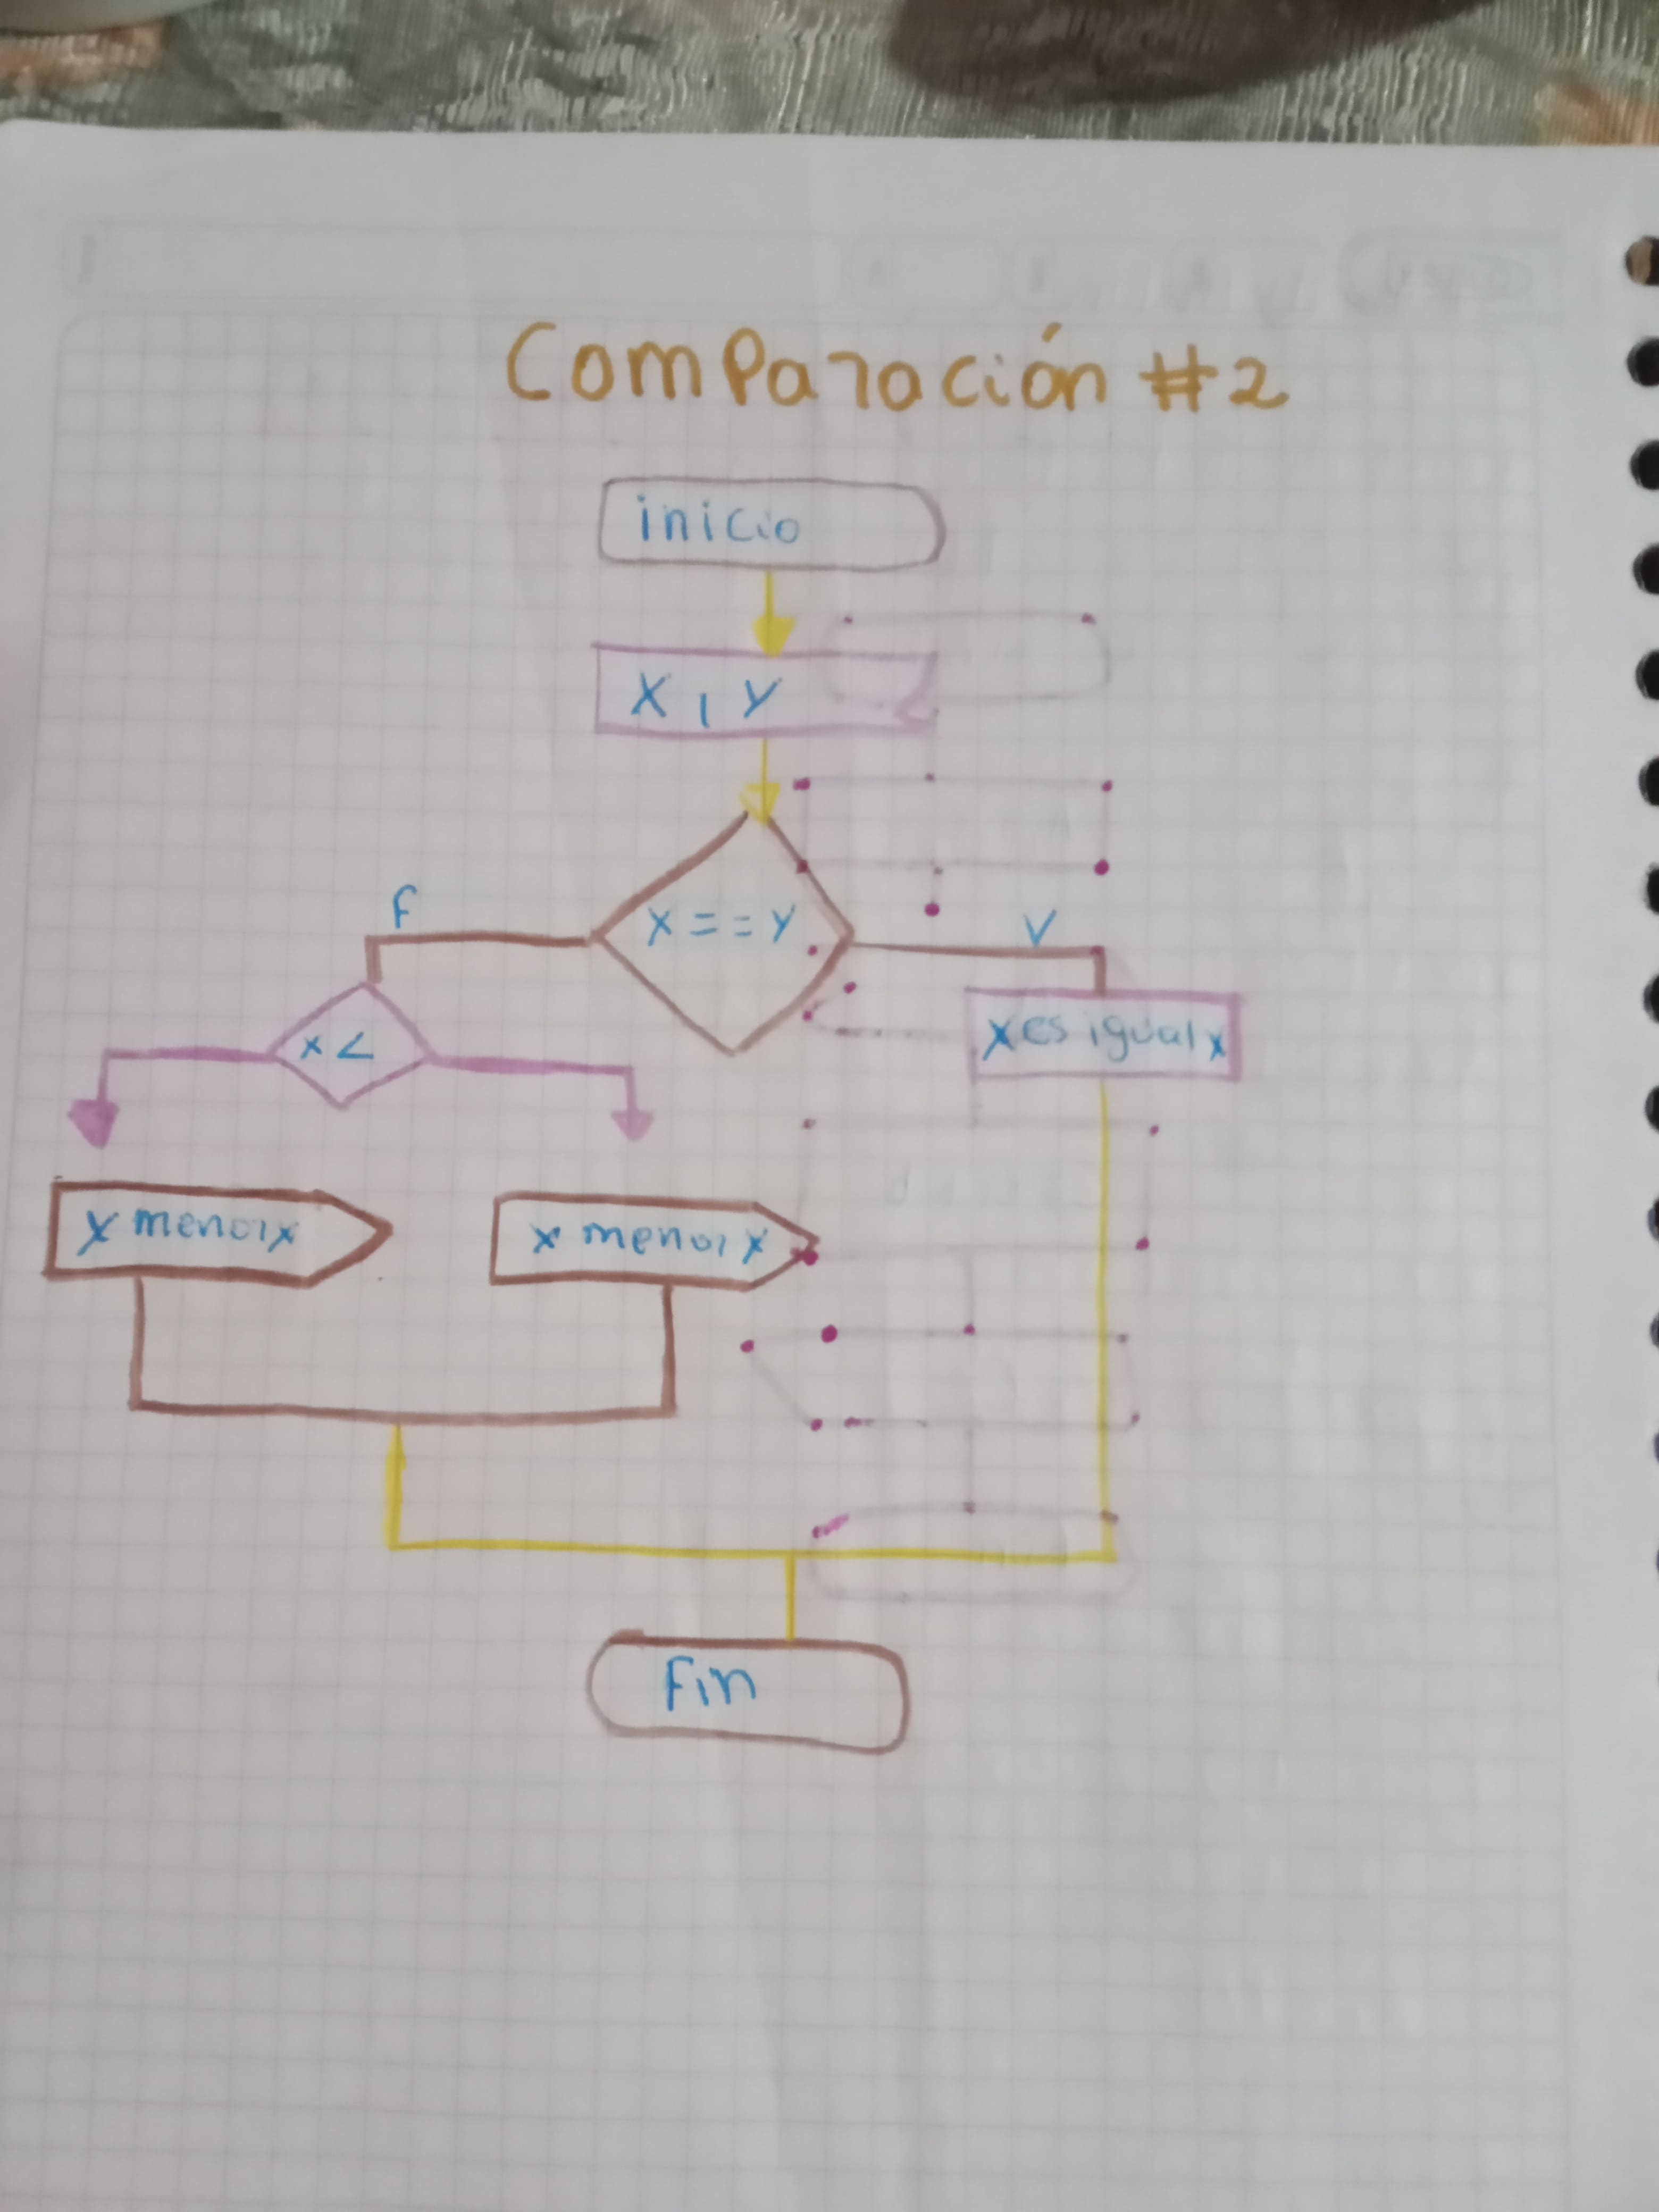 Comparación #2
inicio
X , Y
X = = Y
F
V
x <
x es igual x
x menor x
x menor x
Fin